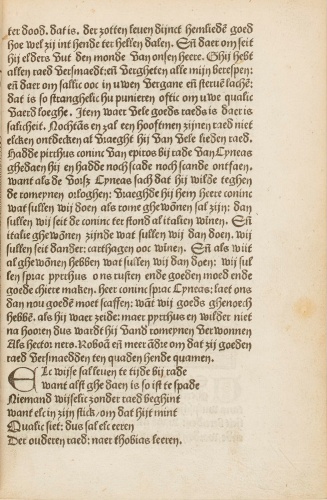 ter dood. dat is. der zotten leuen dijnct hemliedē goed
hoe wel zij int hende ter hellen dalen. Eñ daer om seit
hij elders vut den monde van onsen heere. Ghij hebt
allen raed versmaedt: eñ vergheten alle mijn berespen:
eñ daer om sal ic ooc in uwen vergane eñ steruē lachē:
dat is so stranghelic hu punieren oftic om uwe qualic
vaerd loeghe. Item waer vele goeds raeds is daer is
salicheit. Nochtās en zal een hooftmen zijnen raed niet
elcken ontdecken al vraeght hij van vele lieden raed.
Hadde pirrhus coninc van epiros bij rade van Cyneas
ghedaen hij en hadde noch scade noch scande ontfaen.
want als de voirs Cyneas sach dat hij wilde teghen
de romeynen oirloghen: vraeghde hij hem heere coninc
wat sullen wij doen als rome ghewōnen sal zijn: dan
sullen wij seit de coninc ter stond al italien winen. Eñ
italie ghewōnen zijnde wat sullen wij dan doen. wij
sullen seit danher: carthagen ooc winen. Eñ als wiit
al ghewōnen hebben wat sullen wij dan doen: wij sul
len sprac pyrrhus ons rusten ende goeden moed ende
goede chiere maken. Heer coninc sprac Cyneas: laet ons
dan nou goede moet scaffen: wāt wij goeds ghenoech
hebbē. als hij waer zeide: maer pyrrhus en wilder niet
na hooren dus wardt hij vand romeynen verwonnen
Als hector nets. Roboā eñ meer ādre om dat zij goeden
raed versmaedden ten quaden hende quamen.
Elc wijse sal leuen te tijde bij rade
want alst ghedaen is so ist te spade
Niemand wijselic zonder raed beghint
want elc in zijn stick. om dat hijt mint
Qualic siet: dus sal elc eeren
Der ouderen raed: naer thobias leeren.